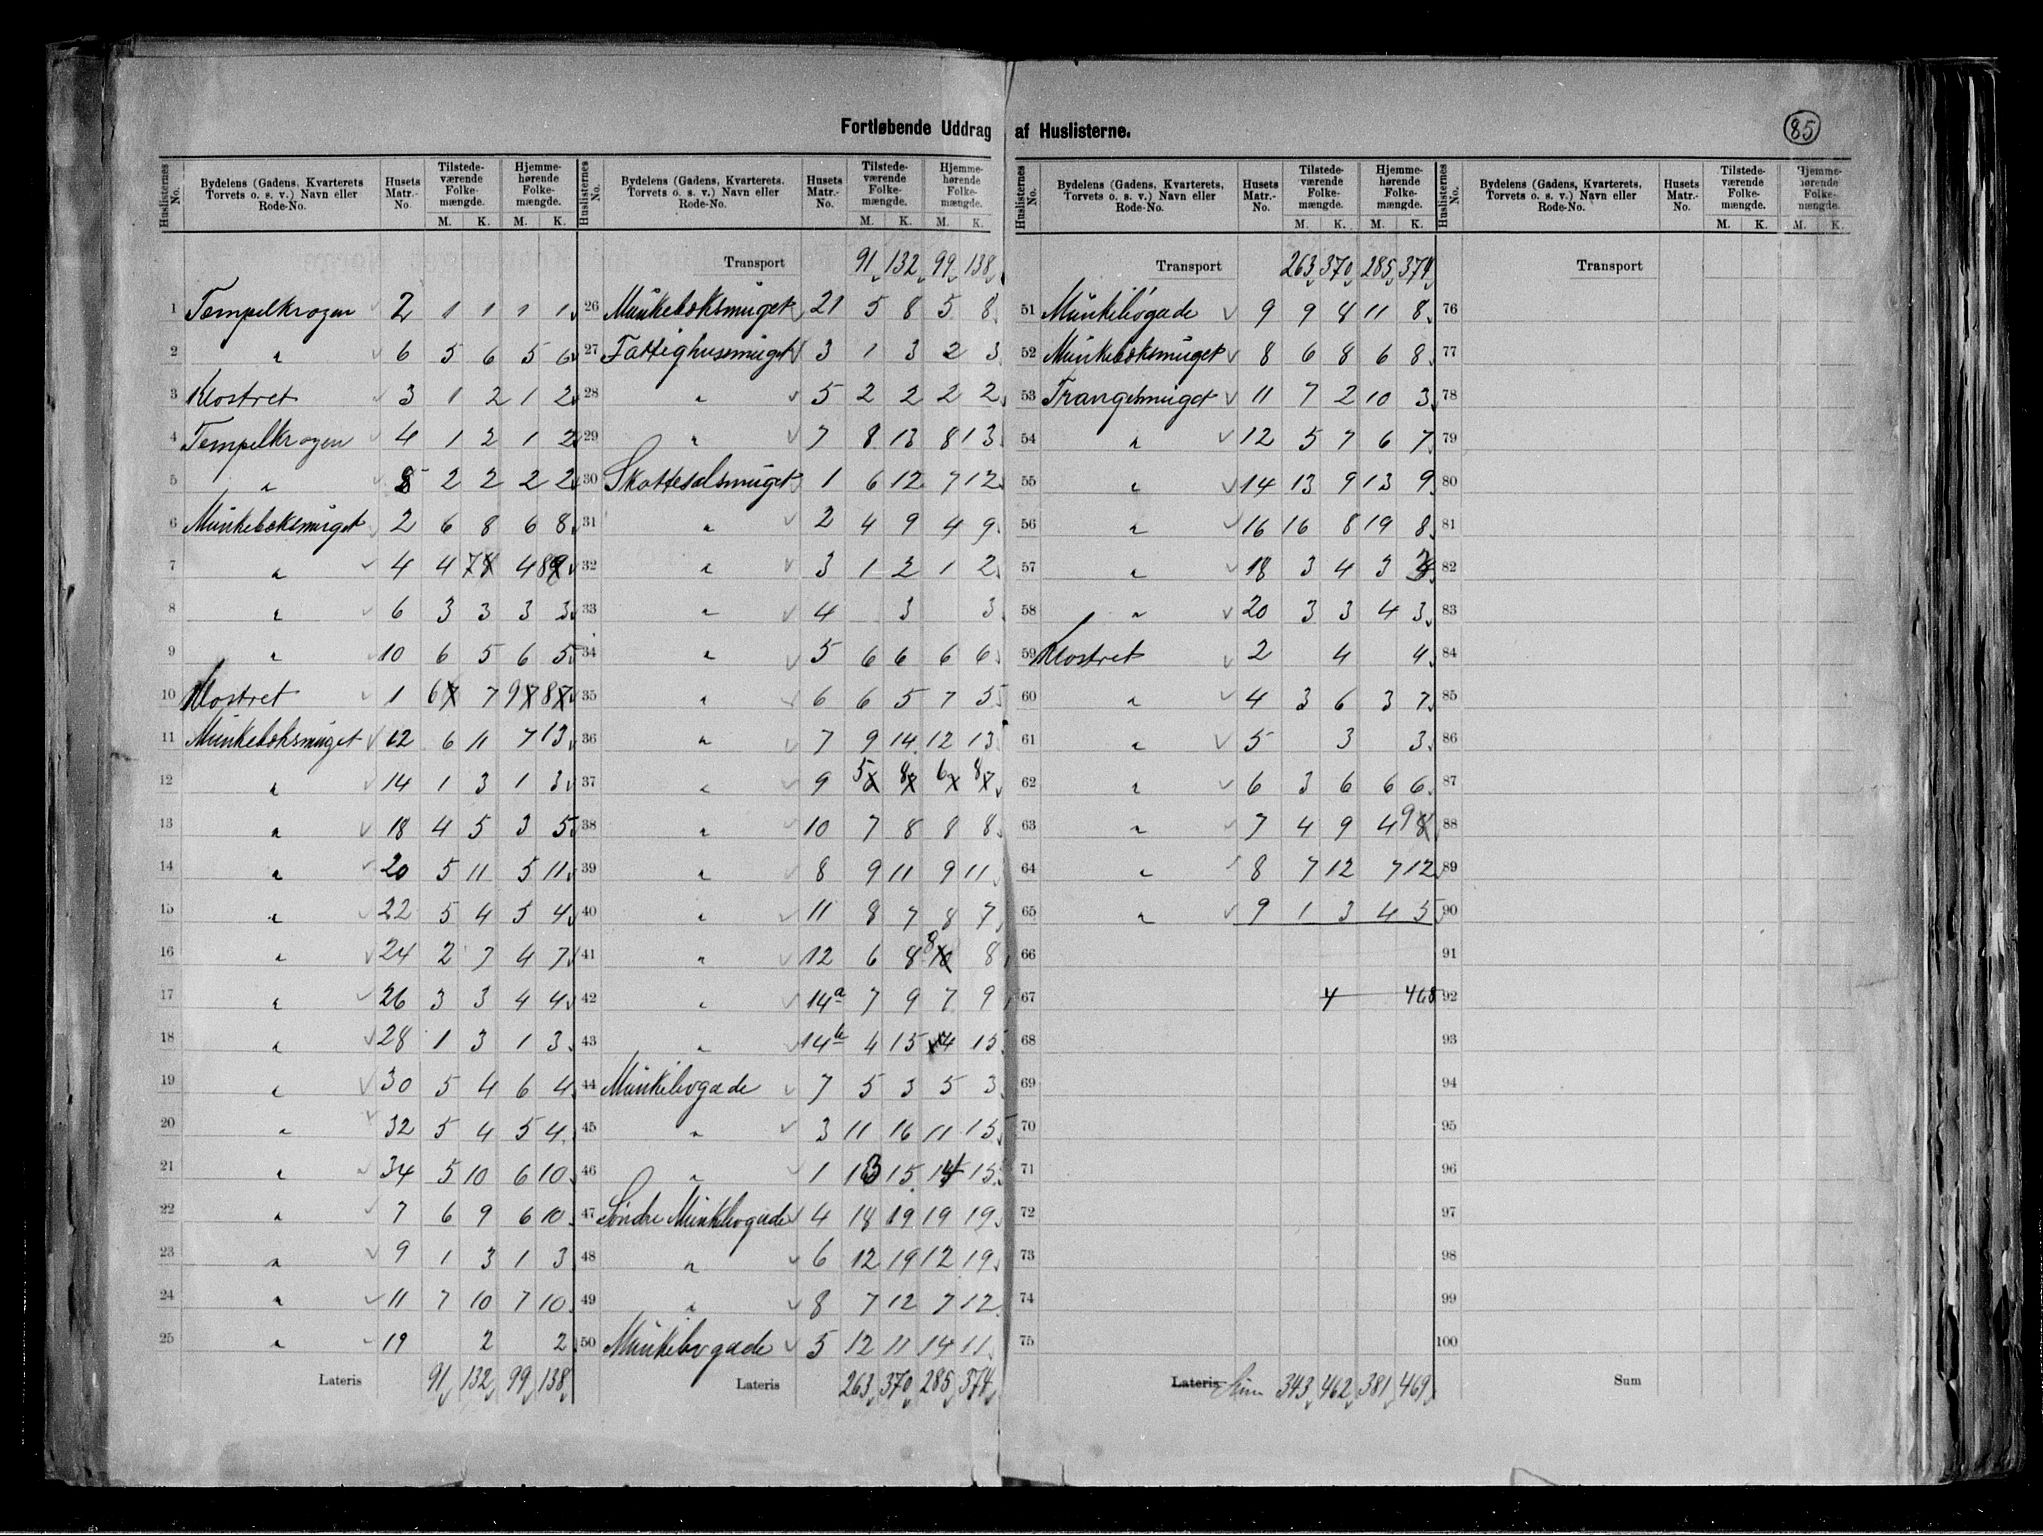 Fortløbende Uddrag af Huslisterne.
85
Huslisternes No. | Bydelens (Gadens, Kvarterets, Torvets o. s. v.) Navn eller Rode-No. | Husets Matr.-No. | Tilstedeværende Folkemængde. M. K. | Hjemmehørende Folkemængde. M. K.
1 Tempelkrogen 2 1 1 1 1
2 " 6 5 6 5 6
3 Klostret 3 1 2 1 2
4 Tempelkrogen 4 1 2 1 2
5 " 8 2 2 2 2
6 Munkebæksmuget 2 6 8 6 8
7 " 4 4 7 4 8
8 " 6 3 3 3 3
9 " 10 6 5 6 5
10 Klostret 1 6 7 9 8
11 Munkebæksmuget 12 6 11 7 13
12 " 14 1 3 1 3
13 " 18 4 5 3 5
14 " 20 5 11 5 11
15 " 22 5 4 5 4
16 " 24 2 7 4 7
17 " 26 3 3 4 4
18 " 28 1 3 1 3
19 " 30 5 4 6 4
20 " 32 5 4 5 4
21 " 34 5 10 6 10
22 " 7 6 9 6 10
23 " 9 1 3 1 3
24 " 11 7 10 7 10
25 " 19 2 2
Lateris 91 132 99 138
Huslisternes No. | Bydelens (Gadens, Kvarterets, Torvets o. s. v.) Navn eller Rode-No. | Husets Matr.-No. | Tilstedeværende Folkemængde. M. K. | Hjemmehørende Folkemængde. M. K.
Transport 91 132 99 138
26 Munkebæksmuget 21 5 8 5 8
27 Fattighusmuget 3 1 3 2 3
28 " 5 2 2 2 2
29 " 7 8 13 8 13
30 Skottesalsmuget 1 6 12 7 12
31 " 2 4 9 4 9
32 " 3 1 2 1 2
33 " 4 3 3
34 " 5 6 6 6 6
35 " 6 6 5 7 5
36 " 7 9 14 12 13
37 " 9 5 8 6 8
38 " 10 7 8 8 8
39 " 8 9 11 9 11
40 " 11 8 7 8 7
41 " 12 6 8 8 8
42 " 14a 7 9 7 9
43 " 14b 4 15 4 15
44 Munkebogade 7 5 3 5 3
45 " 3 11 16 11 15
46 " 1 13 15 14 15
47 Søndre Munkebogade 4 18 19 19 19
48 " 6 12 19 12 19
49 " 8 7 12 7 12
50 Munkebogade 5 12 11 14 11
Lateris 263 370 285 374
Huslisternes No. | Bydelens (Gadens, Kvarterets, Torvets o. s. v.) Navn eller Rode-No. | Husets Matr.-No. | Tilstedeværende Folkemængde. M. K. | Hjemmehørende Folkemængde. M. K.
Transport 263 370 285 374
51 Munkebogade 9 9 8 11 8
52 Munkebæksmuget 8 6 8 6 8
53 Trangesmuget 11 7 2 10 3
54 " 12 5 7 6 7
55 " 14 13 9 13 9
56 " 16 16 8 19 8
57 " 18 3 4 3
58 " 20 3 3 4 3
59 Klostret 2 4 4
60 " 4 3 6 3 7
61 " 5 3 3
62 " 6 3 6 6 6
63 " 7 4 9 4 9
64 " 8 7 12 7 12
65 " 9 1 3 4 5
66
67 4 468
68
69
70
71
72
73
74
75
Lateris Sum 343 462 381 469
Huslisternes No. | Bydelens (Gadens, Kvarterets, Torvets o. s. v.) Navn eller Rode-No. | Husets Matr.-No. | Tilstedeværende Folkemængde. M. K. | Hjemmehørende Folkemængde. M. K.
Transport
76
77
78
79
80
81
82
83
84
85
86
87
88
89
90
91
92
93
94
95
96
97
98
99
100
Sum